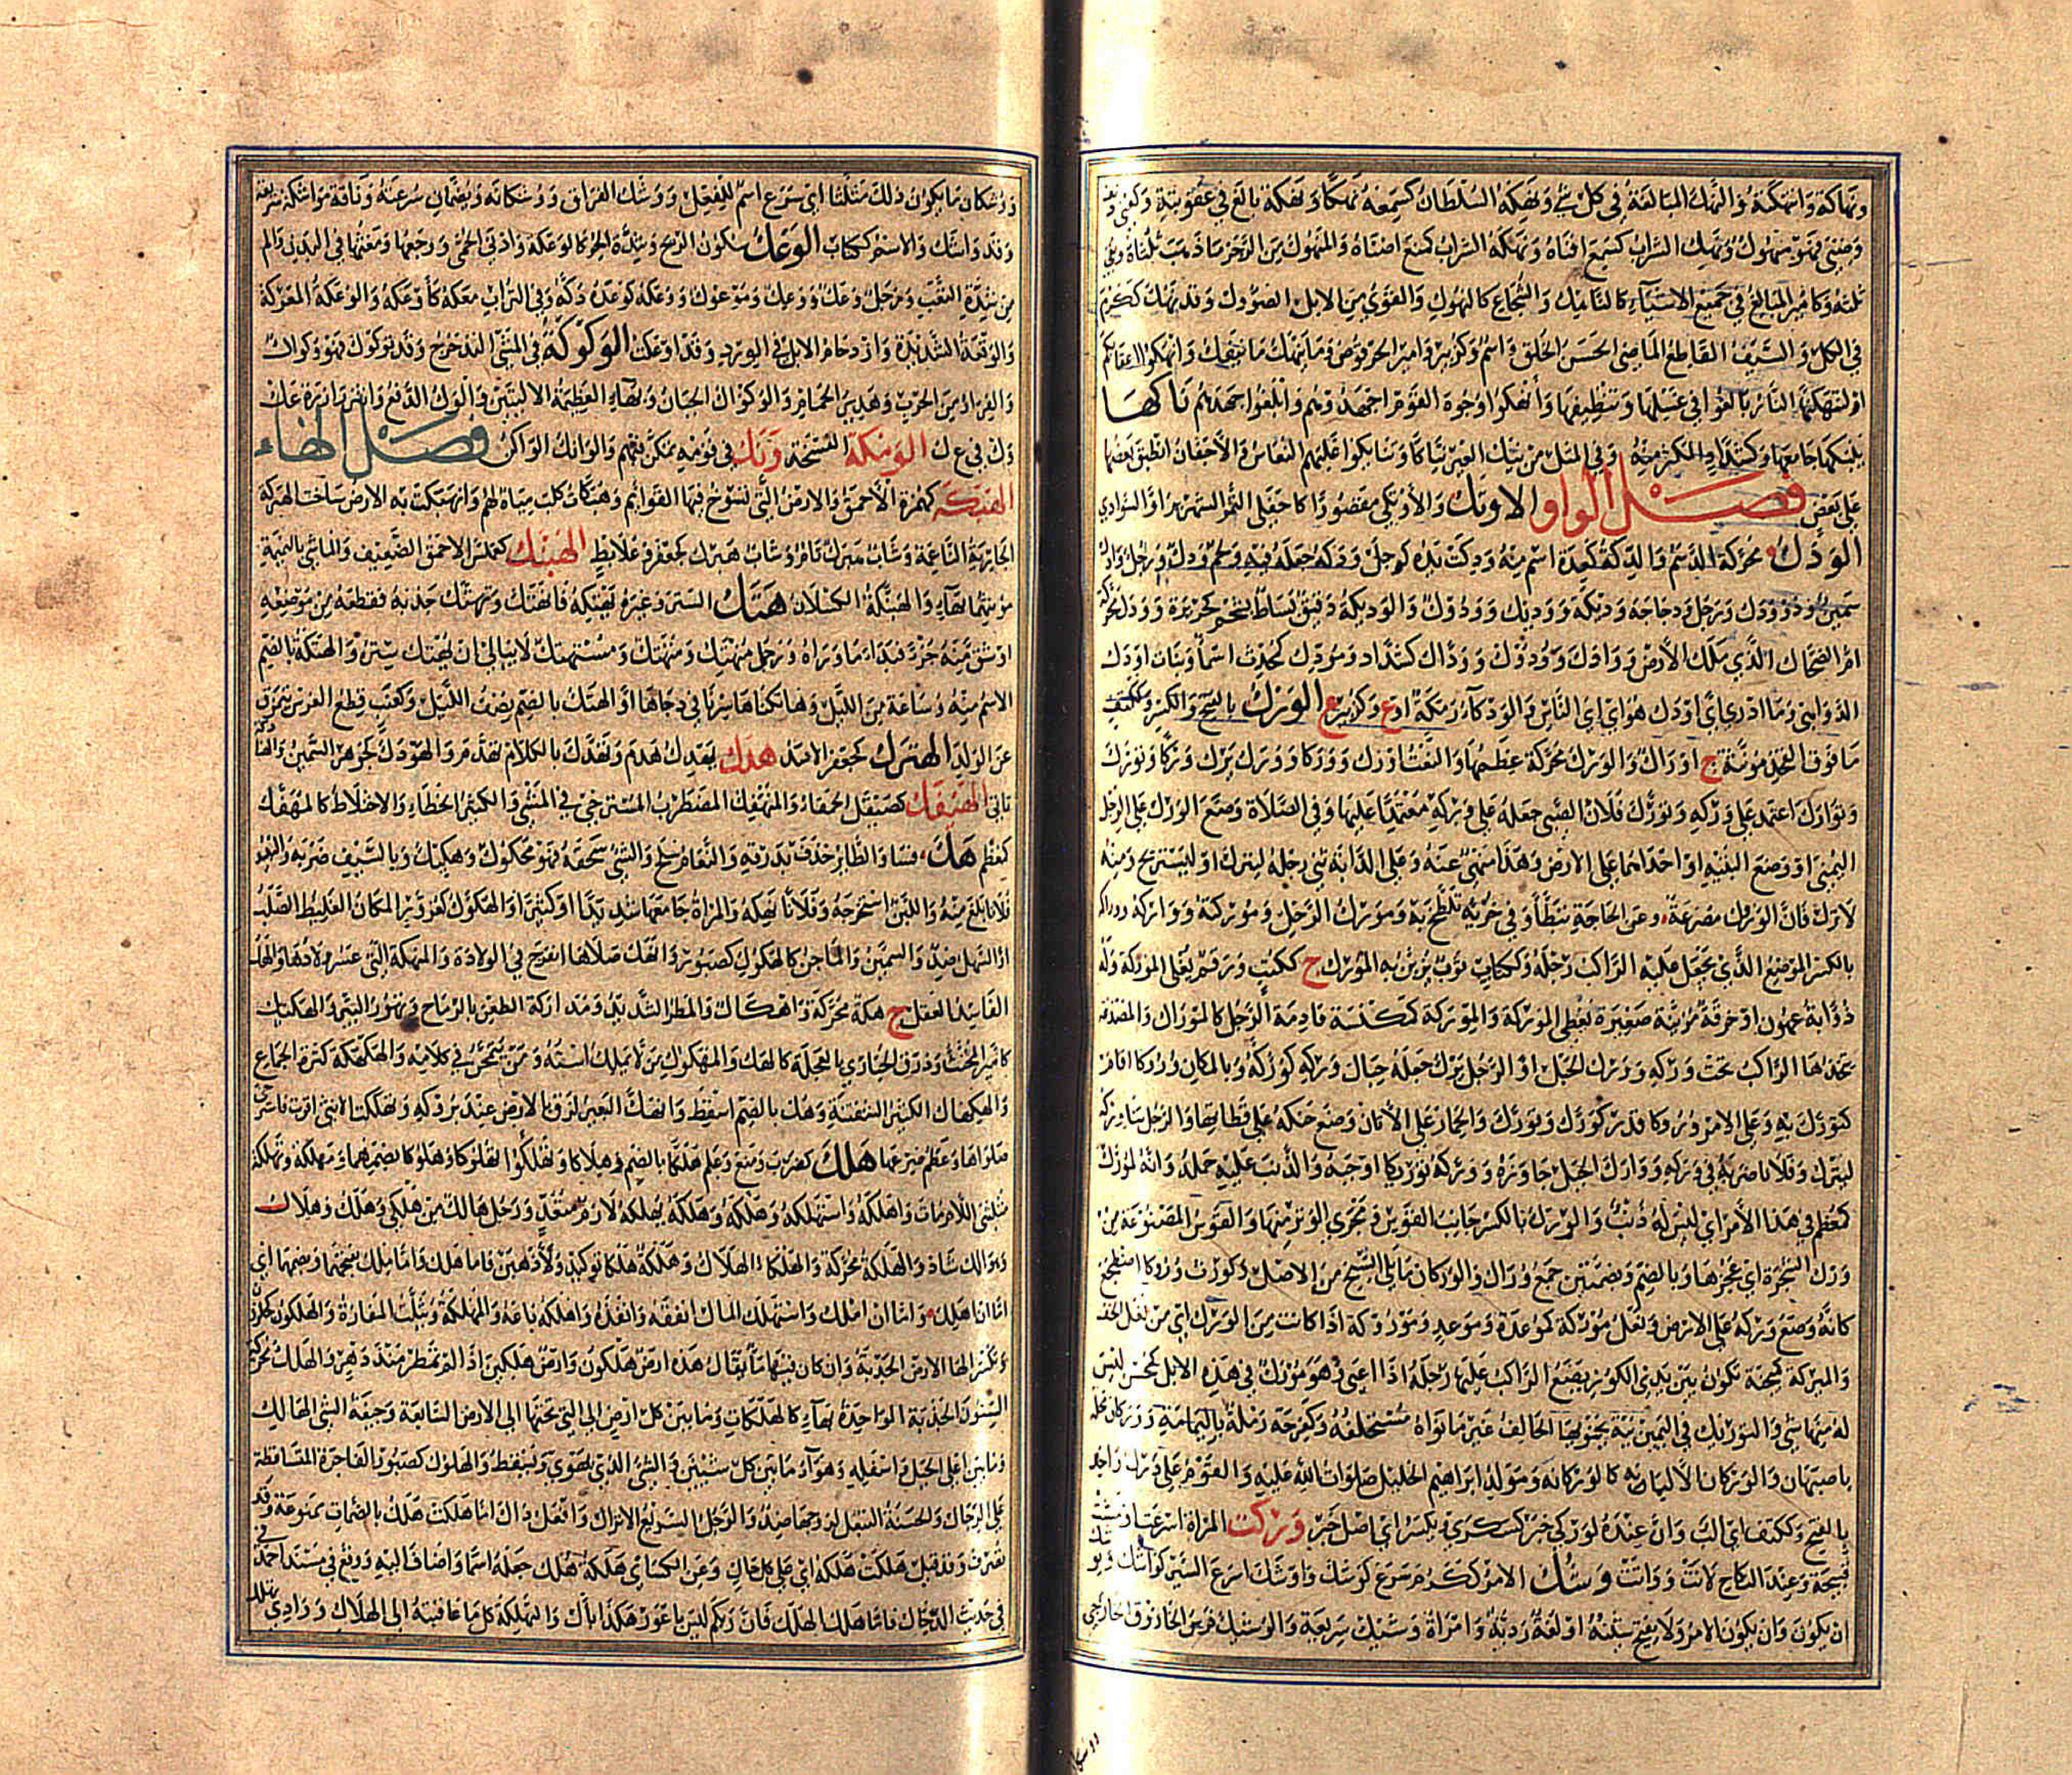 ونهاكة وانتهكته والنهك المبالغة في كل شيء ونهكه السلطان كسمعه نهكا ونهكة بالغ في عقوبته وكعني
وضني فهو منهوك ونهك الشراب كسمع افناه ونهكه الشراب كمنع اضناه والمنهوك من الرجز ما ذهب ثلثاه وبقي
ثلثه وكامير المبالغ في جميع الاشياء كالناهك والشجاع كالنهوك والقوي من الابل الصؤول وقد نهك ككرم
في الكل والسيف القاطع الماضي الحسن الخلق واسم وكزبير وامير الحرقوص وما ينهك ما ينفك وانهكوا اعقابكم
او لتنهكنها النار بالغوا في غسلها وتنظيفها وأنهكوا وجوه القوم اجهدوهم وابلغوا جهدهم ناكها
ينيكها جامعها وكشداد المكثر منه وفي المثل من ينك العير نياكا وتنايكوا غلبهم النعاس والاجفان انطبق بعضها
على بعض فصل الواو الاوتك والأوتكى مقصورا كاجفلى التمر الشهريز او السوادي
الودك محركة الدسم والدكة كعدة اسم منه وودكت يده كوجل وودكه جعله فيه ولحم ودك ورجل وادك
سمين ذو ودك ورجل ودجاجة وديكة ووديك وودوك والوديكة دقيق يساط بشحم كخزيرة وودك محركة
ام الضحاك الذي ملك الأرض ووادك وودوك ووداك كشداد ومودك كمحدث اسماء وبنات اودك
الدواهي وما ادري اي اودك هو اي اي الناس والودكاء رملة او ع وكزبير ع الورك بالفتح والكسر وككتف
ما فوق الفخذ مؤنثة ج اوراك والورك محركة عظمها والنعت اورك ووركا وورك يرك وركا وتورك
وتوارك اعتمد على وركه وتورك فلان الصبي جعله على وركه معتمدا عليها وفي الصلاة وضع الورك على الرجل
اليمنى او وضع اليتيه او احداهما على الارض وهذا منهي عنه وعلى الدابة ثنى رجله ليترك او ليستريح ومنه
لا ترك فان الوروك مصرعة وعن الحاجة تبطأ وفي خرئه تلطخ به ومورك الرحل وموركته وواركه ووراكه
بالكسر الموضع الذي يجعل عليه الراكب رجله وككتاب ثوب يزين به المورك ج ككتب ورقم يعلى الموركة وله
ذؤابة عهون او خرقة مزينة صغيرة تغطي الموركة والموركة كمكنسة قادمة الرحل كالموراك والمصدغة
يتخذها الراكب تحت وركه وورك الحبل او الرحل يرك جعله حيال وركه كوركه وبالمكان وروكا اقام
كتورك به وعلى الامر وروكا قدر كورك وتورك والحمار على الأتان وضع حنكه على قطاتها والرجل
ليترك وفلانا ضربه في وركه ووارك الجبل جاوزه ووركه توريكا اوجبه والذنب عليه حمله وانه لمورك
كمعظم في هذا الأمر اي ليس له ذنب والورك بالكسر جانب القوس ومجرى الوتر منها والقوس المصنوعة من
ورك الشجرة اي عجزها وبالضم وبضمتين جمع وراك والوركان ما يلي السنخ من الاصل وكورث وروكا اضطجع
كانه وضع وركه على الارض ونعل موركة كموعدة وموعد وموروكة اذا كانت من الورك اي من نعل الخف
والميركة كمجنة تكون بين يدي الكور يضع الراكب عليها رجله اذا اعيى وهو مورك في هذه الابل كمحسن ليس
له منها شي والتوريك في اليمين نية ينويها الحالف غير ما نواه مستحلفه وكفرحة رملة باليمامة ووركان محلة
باصبهان والوركانة كالوركانة ومولد ابراهيم الخليل صلوات الله عليه والقوم علي ورك واحد
بالفتح وككتف اي الب وان عنده لوركى خبر كسكرى ويكسر اي اصل خبر وزكت المراة اسرعت او مشت
قبيحة وعند النكاح لانت وواتت وشك الامر ككرم سرع كوشك واوشك اسرع السير كواشك ويوشك
ان يكون وان يكون الامر ولا يفتح شينه او لغة ردية وامراة وشيك سريعة والوشيك فرس الحازوق الخارجي
ووشكان ما يكون ذلك مثلثا اي سرع اسم للفعل ووشك الفراق ووشكانه ويضمان سرعته وناقة مواشكة سريعة
وقد واشك والاسم ككتاب الوعك سكون الريح وشدة الحر كالوعكة واذى الحمى ووجعها ومغثها في البدن والم
من شدة التعب ورجل وعك ووعك وموعوك ووعكه كوعده دكه وفي التراب معكه كأوعكه والوعكة المعركة
والوقعة الشديدة وازدحام الابل في الورد وقد اوعك الوكوكة في المشي التدحرج وقد توكوك فهو وكواك
والفرار من الحرب وهدير الحمام والوكواك الجبان وبهاء العظيمة الاليتين والوك الدفع وائتزر ازرة عك
وك في ع ك الومكة الفسحة ونك في قومه تمكن فيهم والوانك الواكن فصل الهاء
الهبكة كهمزة الأحمق والارض التي تسوخ فيها القوائم وهبكات كلب مياه لهم وانهبكت به الارض ساخت الهبركة
الجارية الناعمة وشاب هبرك تام وشاب هبرك كجعفر وعلابط الهبنك كعملس الاحمق الضعيف والماشي بالنميمة
مؤنثهما بهاء والهبنكة الكسلان هتك الستر وغيره يهتكه فانهتك وتهتك جذبه فقطعه من موضعه
او شق منه جزءا فبدا ما وراه ورجل منهتك ومتهتك ومستهتك لا يبالي ان يهتك ستره والهتكة بالضم
الاسم منه وساعة من الليل وهاتكناها سرنا في دجاها او الهتك بالضم نصف الليل وكعنب قطع الغرس يتمزق
عن الولد الهترك كجعفر الاسد هدك يهدك هدم وتهدك بالكلام تهدم والهودك كجوهر السمين
الهيفك كصيقل الحمقاء والمتهفك المضطرب المسترخي في المشي والكثير الخطاء والاختلاط كالمهفك
كمعظم هك فسا والطائر حذف بذرقه والنعام سلح والشئ سحقه فهو مهكوك وهكيك وبالسيف ضربه والنبيذ
فلانا بلغ منه واللبن استخرجه وفلانا نهكه والمراة جامعها شديدا او كثيرا والهكوك كعزور المكان الغليظ الصلب
او السهل ضد والسمين والماجن كالهكوك كصبور وانهك صلاها انفرج في الولادة والمنهكة التي عسر ولادها والهك
الفاسد العقل ج هككة محركة واهكاك والمطر الشديد ومداركة الطعن بالرماح وتهور البئر والهكيك
كامير المخنث وذرق الحبارى بالعجلة كالهك والمهكوك من لا يملك استه ومن يتمجن في كلامه والهكهكة كثرة الجماع
والهكهاك الكثير الشفتنة وهك بالضم اسقط وانهك البعير لزق بالارض عند بروكه وتهككت الانثى اقربت فاسترخى
صلواها وعظم ضرعها هلك كضرب ومنع وعلم هلكا بالضم وهلاكا وتهلوكا وهلوكا بضمهما ومهلكة وتهلكة
مثلثي اللام مات واهلكه واستهلكه وهلكه وهلكه يهلكه لازم متعد ورجل هالك من هلكى وهلك وهلاك
وهوالك شاذ والهلكة محركة والهلكاء الهلاك وهلكة هلكا توكيد ولأذهبن فاما هلك واما ملك بفتحهما وبضمهما اي
اما ان اهلك واما ان املك واستهلك المال انفقه وانفده واهلكه باعه والمهلكة ويثلث المفازة والهلكون كحلزون
وتكسر الها الارض الجدبة وان كان فيها ماء يقال هذه ارض هلكون وارض هلكين اذا لم تمطر منذ دهر والهلك محركة
السنون الجدبة الواحدة بهاء كالهلكات وما بين كل ارض الى التي تحتها الى الارض السابعة وجيفة الشئ الهالك
وما بين اعلى الجبل واسفله وهواء ما بين كل شيئين والشئ الذي يهوي ويسقط والهلوك كصبور الفاجرة المتساقطة
على الرجال والحسنة التبعل لزوجها ضد والرجل السريع الانزال وافعل ذاك اما هلكت هلك بالضمات ممنوعة وقد
تصرف وقد قيل هلكت هلكه اي على كل حال وعن الكسائي هلكة هلك جعله اسما واضاف اليه ووقع في مسند احمد
في حديث الدجال فاما هلك الهلك فان ربكم ليس باعور هكذا بأل والتهلكة كل ما عاقبته الى الهلاك ووادي تهلك